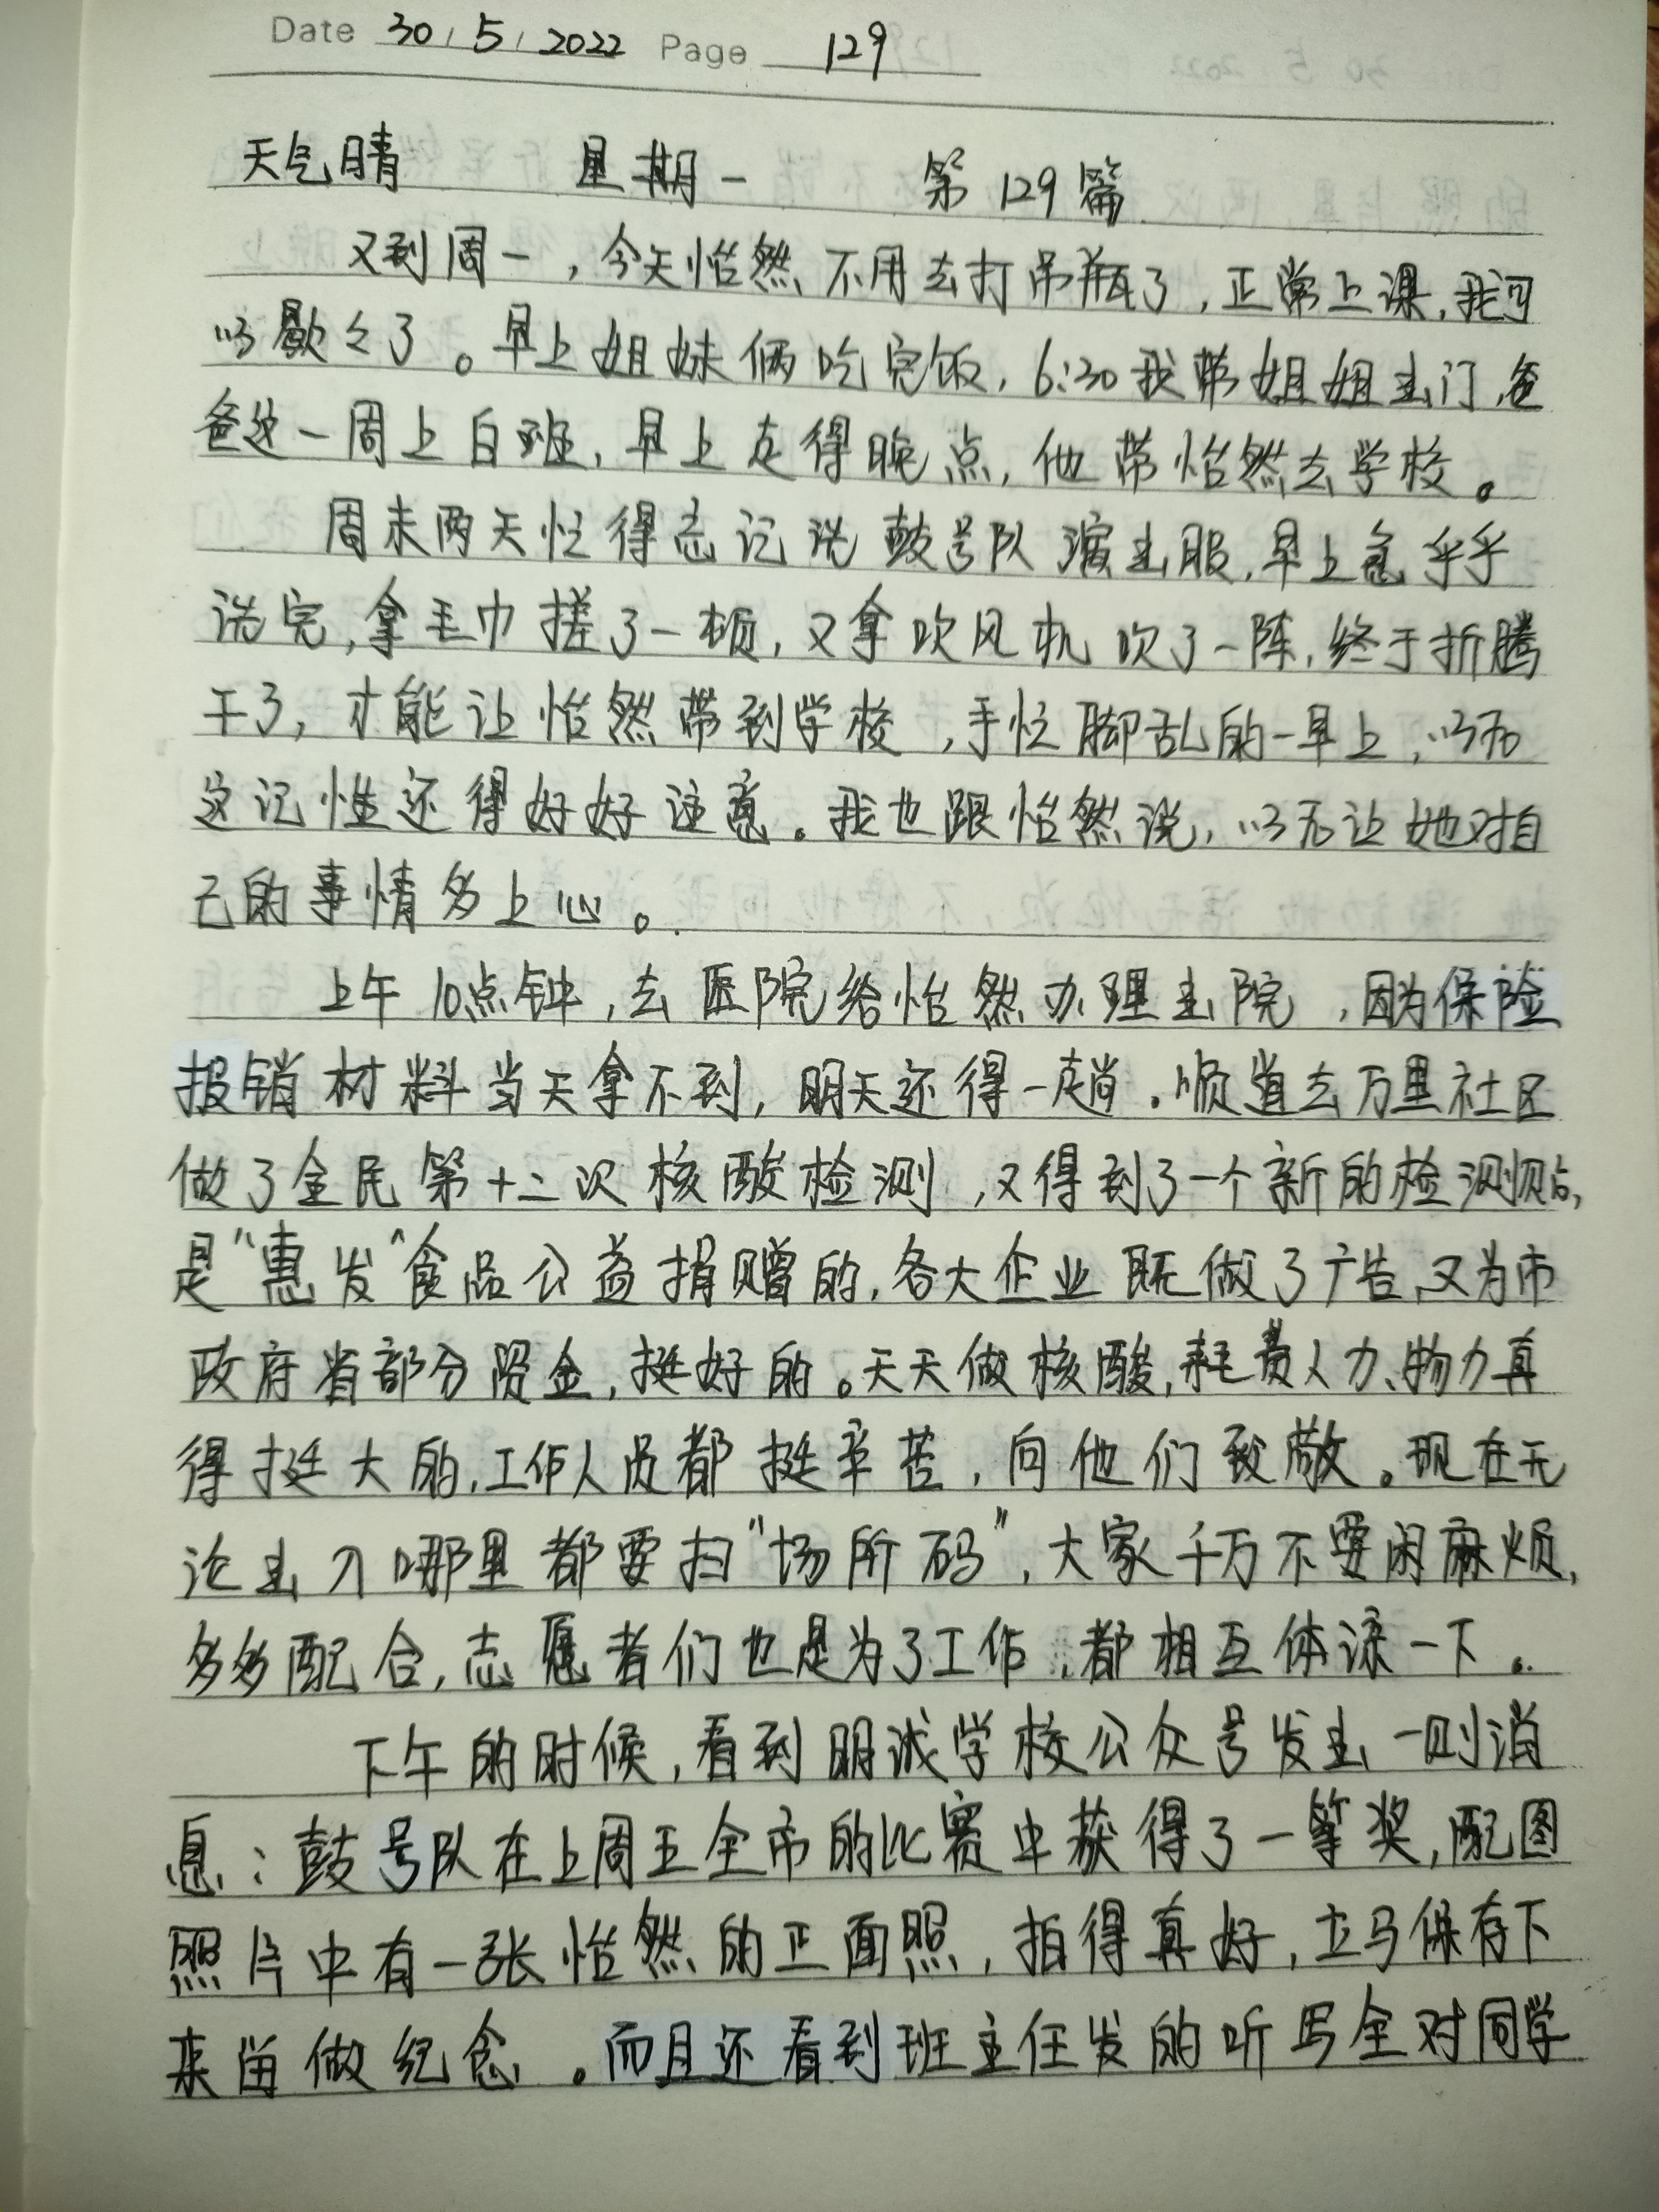 Date 30/5/2022 Page 129
天气晴 星期一 第129篇
又到周一，今天怡然不用去打吊瓶了，正常上课，我可
以歇歇了。早上姐妹俩吃完饭，6:30我带姐姐出门，爸
爸这一周上白班，早上走得晚点，他带怡然去学校。
周末两天忙得忘记洗鼓号队演出服，早上急乎乎
洗完，拿毛巾搓了一顿，又拿吹风机吹了一阵，终于折腾
干了，才能让怡然带到学校，手忙脚乱的一早上，以后
这记性还得好好注意。我也跟怡然说，以后让她对自
己的事情多上心。
上午10点钟，去医院给怡然办理出院，因为保险
报销材料当天拿不到，明天还得一趟。顺道去万里社区
做了全民第十二次核酸检测，又得到了一个新的检测贴，
是“惠发”食品公益捐赠的，各大企业既做了广告，又为市
政府省部分资金，挺好的。天天做核酸，耗费人力、物力真
得挺大的，工作人员都挺辛苦，向他们致敬。现在无
论出入哪里都要扫“场所码”，大家千万不要闲麻烦，
多多配合，志愿者们也是为了工作，都相互体谅一下。
下午的时候，看到明诚学校公众号发出一则消
息：鼓号队在上周五全市的比赛中获得了一等奖，配图
照片中有一张怡然的正面照，拍得真好，立马保存下
来留做纪念。而且还看到班主任发的听写全对同学